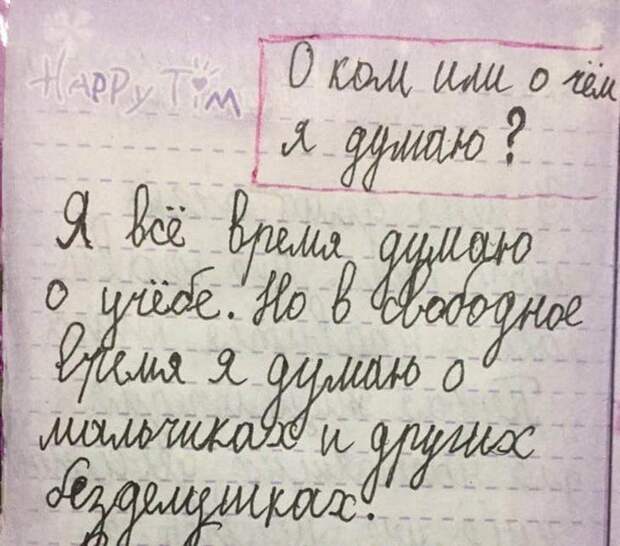 HAPPY TIM
О ком или о чём
я думаю?
Я всё время думаю
о учёбе. Но в свободное
время я думаю о
мальчиках и других
безделушках.